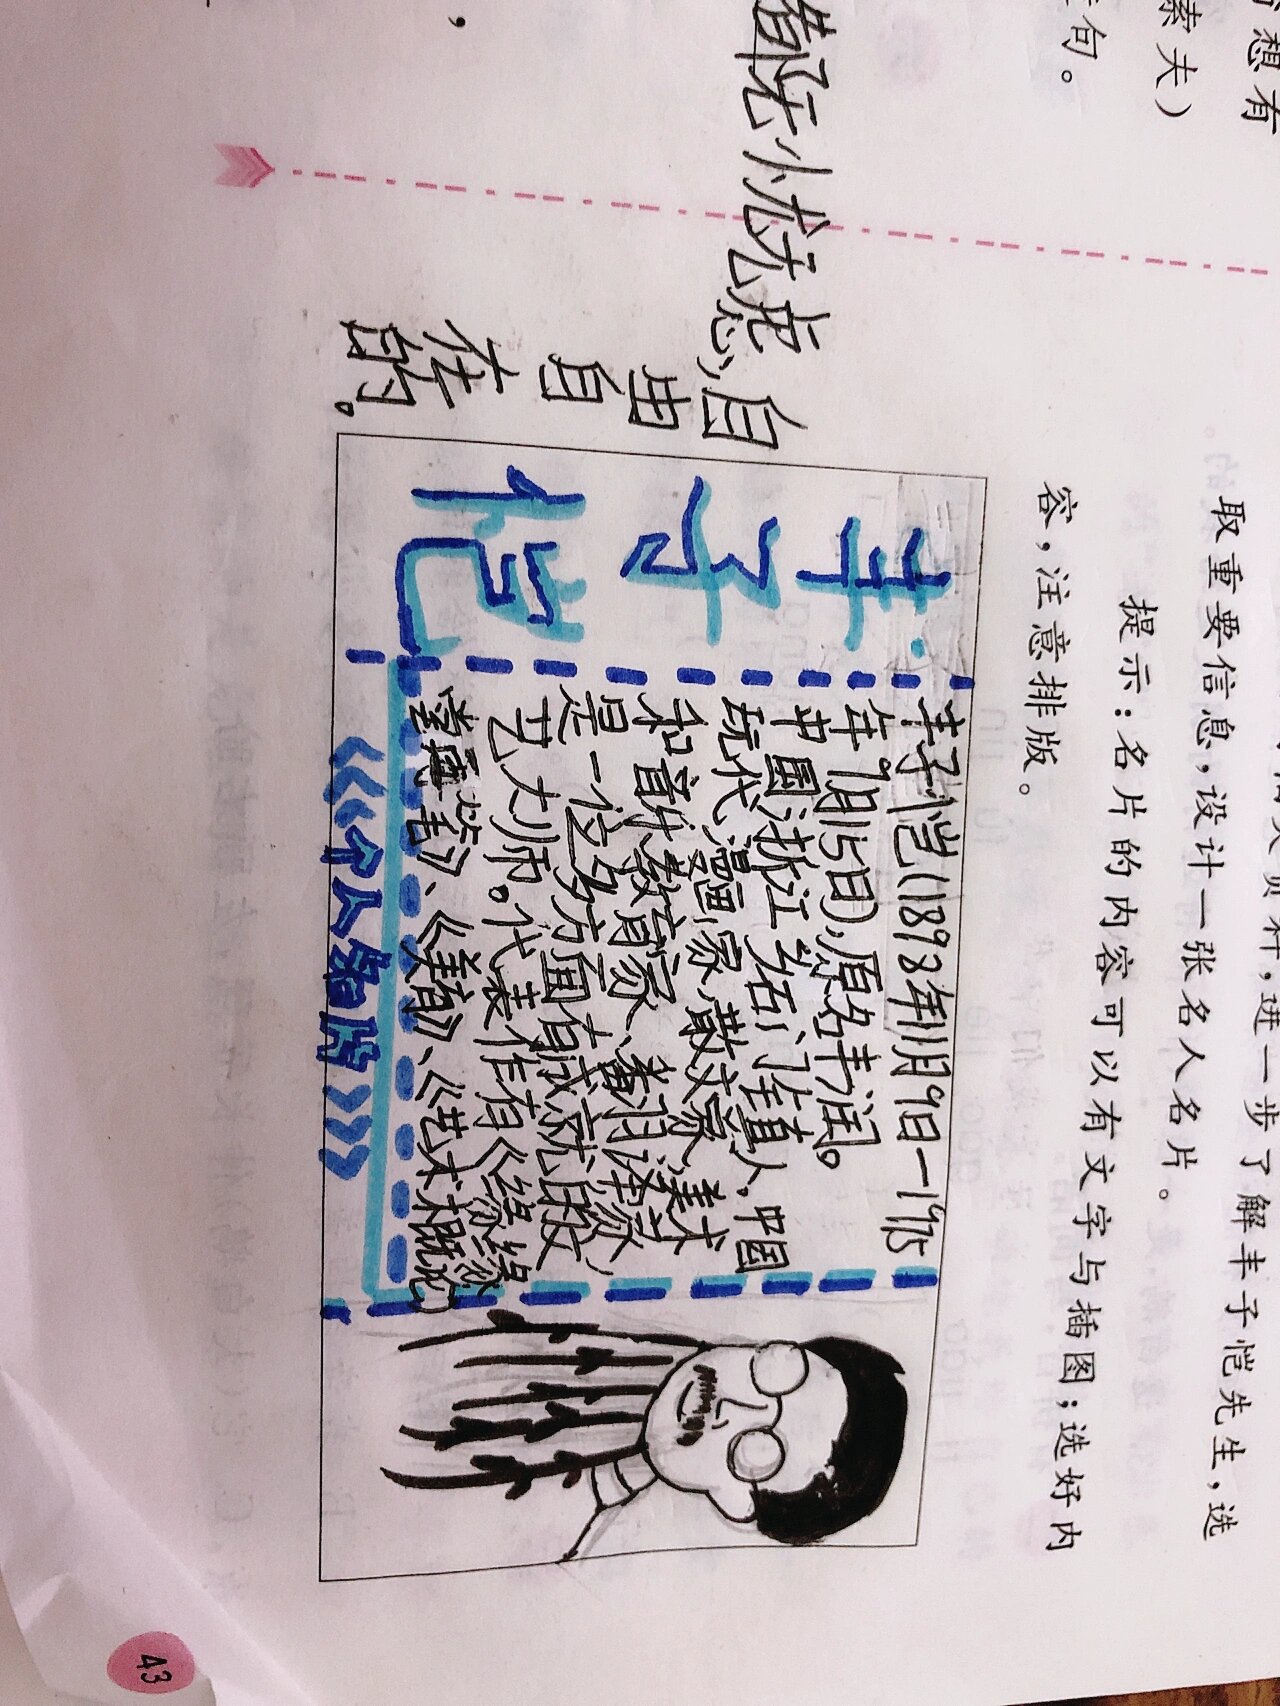 想有
索夫）
句。
都无忧无虑,自
由
自
在
的。
取重要信息，设计一张名人名片。
提示：名片的内容可以有文字与插图；选好内
容，注意排版。
进一步了解丰子恺先生，选
丰子恺
丰子恺(1898年11月9日—1975
年9月15日),原名丰润。
中国浙江石门镇人。中国
现代漫画家、散文家、美术
和音乐教育家、翻译家,
是一位多方面有成就的文
艺大师。代表作有《缘缘
堂随笔》、《美育》、《艺术概论》
《《《个人名片》》》
43